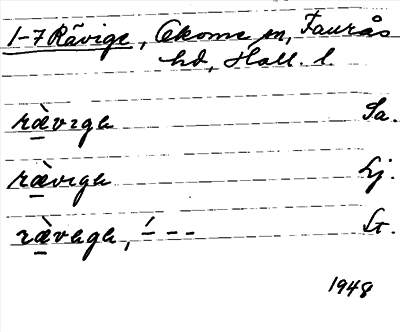 1-7 Rävige, Okome sn, Faurås
hd, Hall. l.
rävıgɐ Sa.
rävıgɐ Lj.
rävɐgɐ, ˊ - - - St.
1948